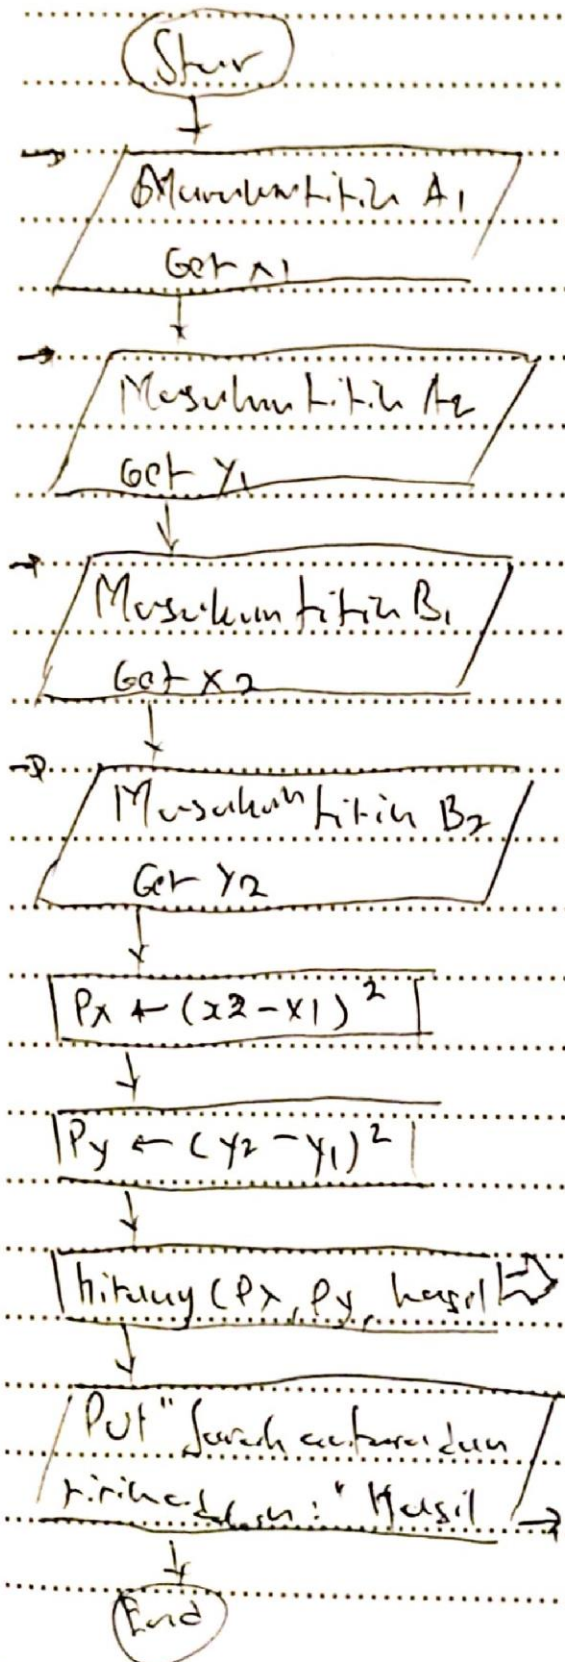 Start
Masukan titik A1
Get x1
Masukan titik A2
Get y1
Masukan titik B1
Get x2
Masukan titik B2
Get y2
Px ← (x2-x1)²
Py ← (y2-y1)²
hitung (Px, Py, hasil
Put "Jarak antara dua
titik adalah:" Hasil
End